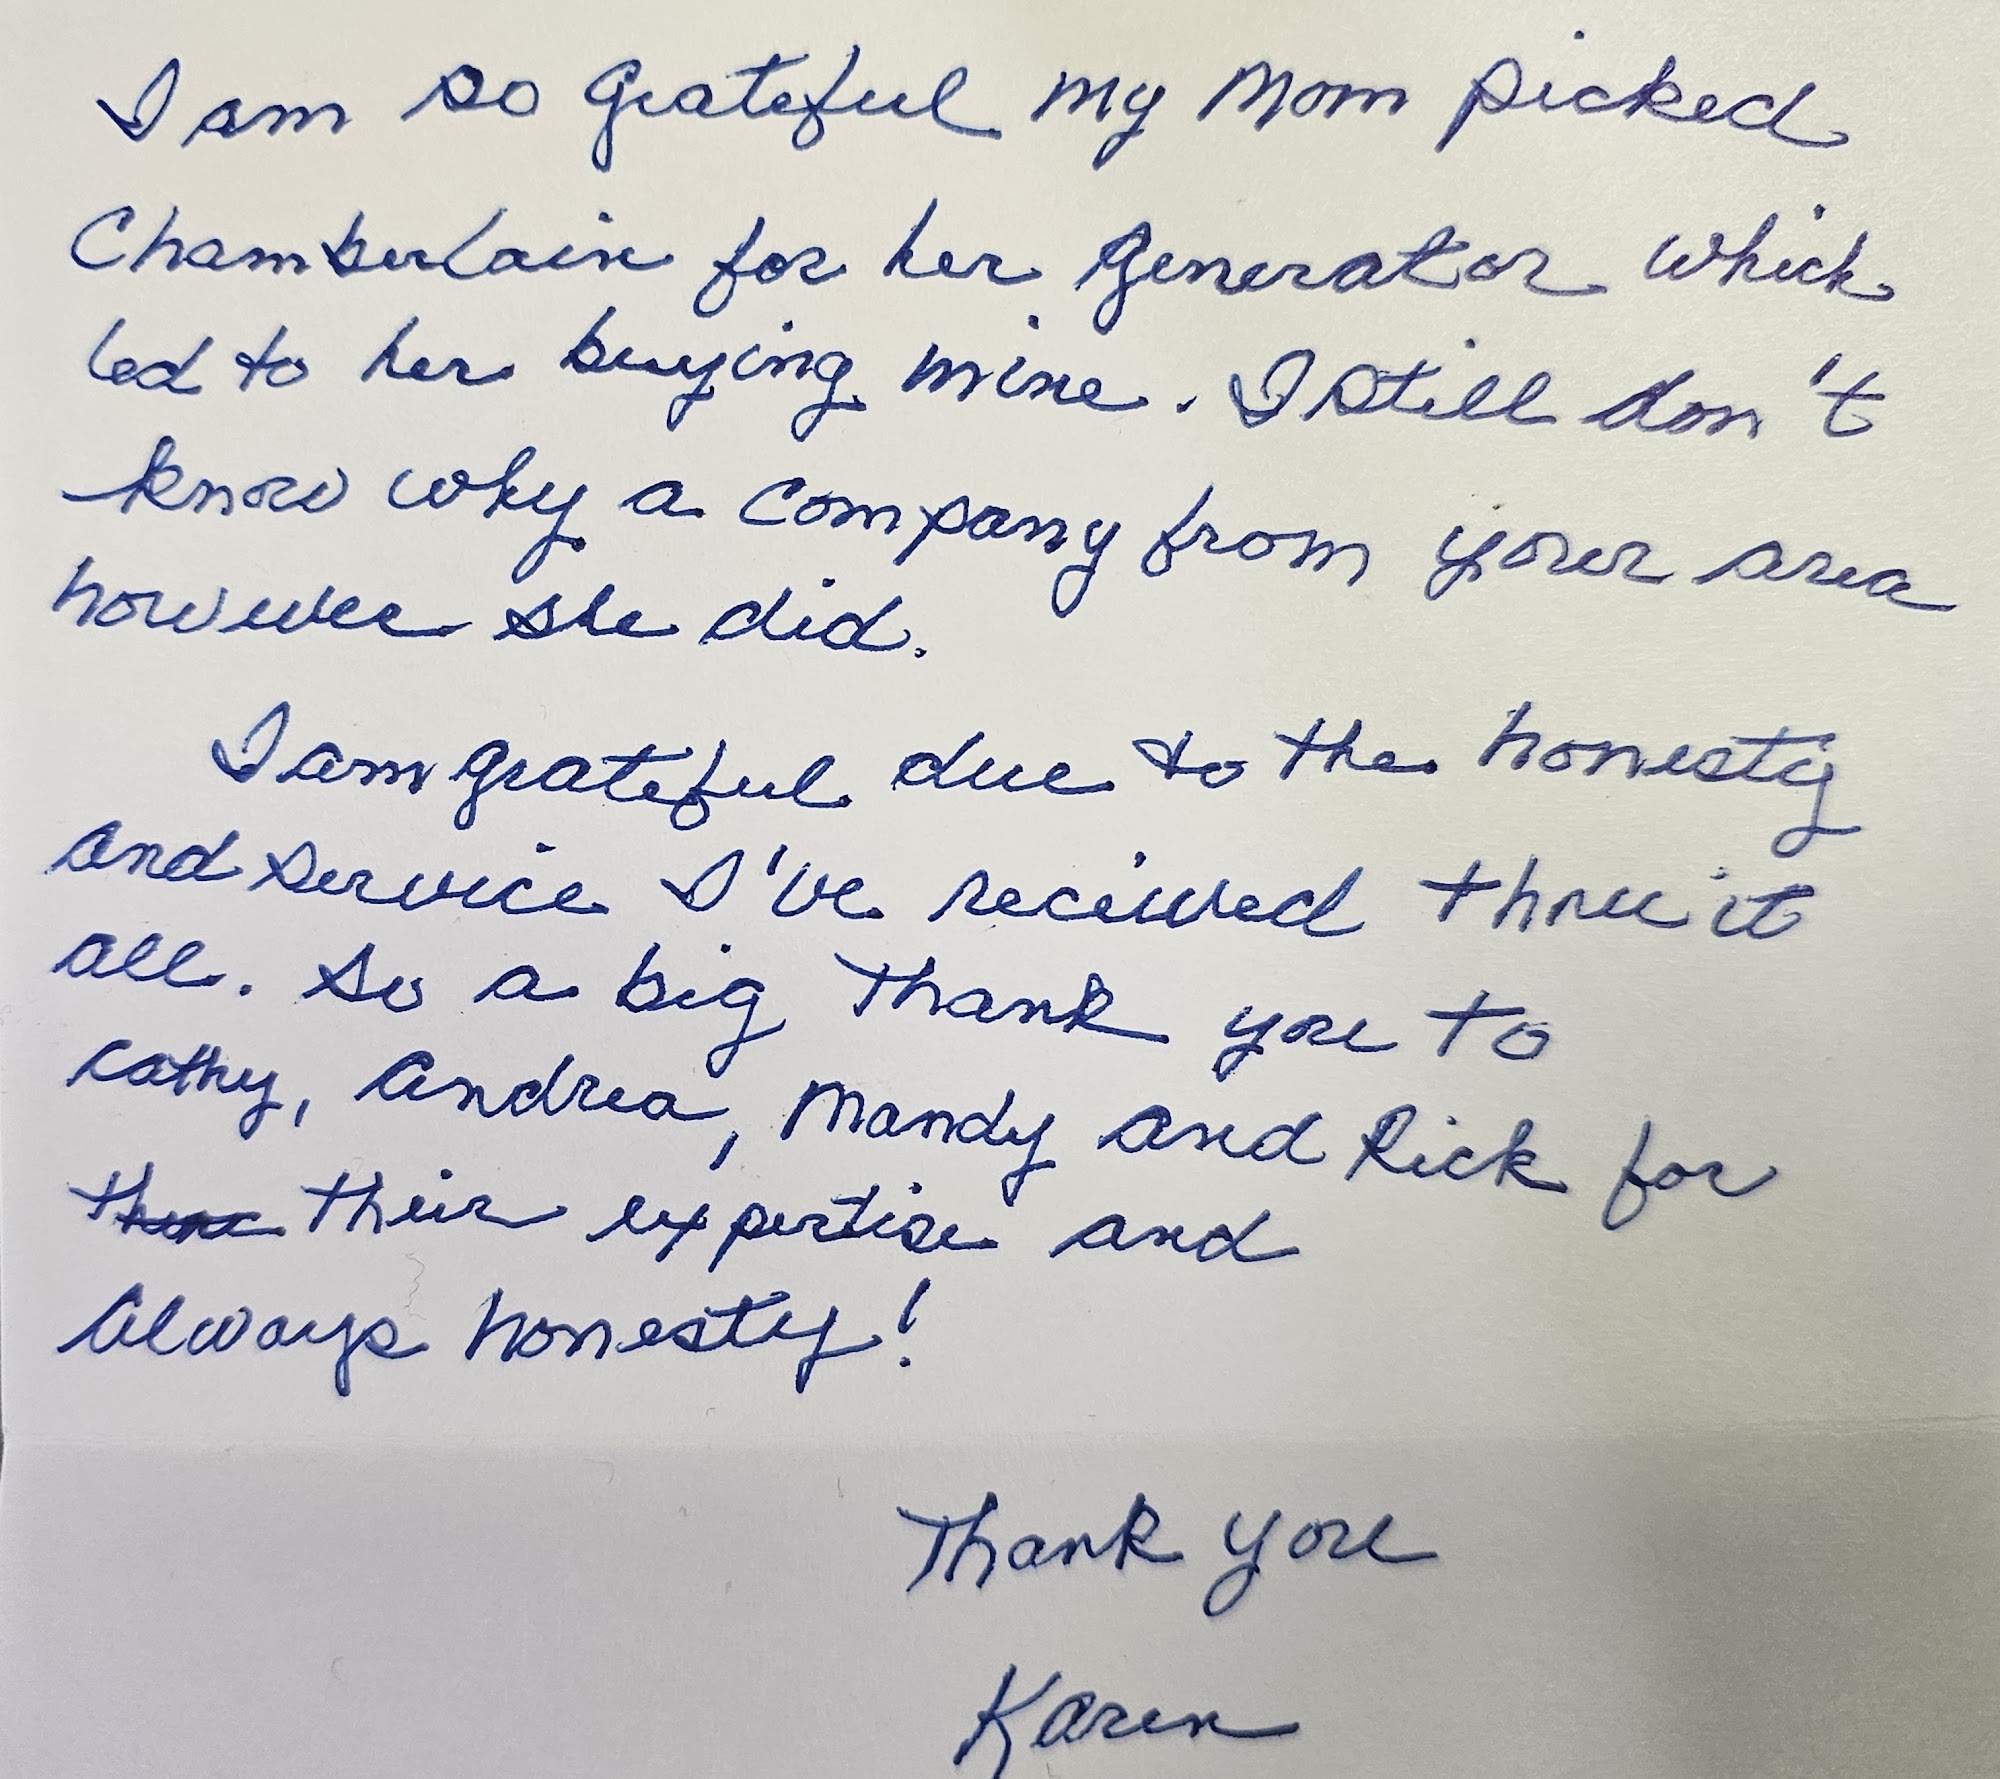 I am so grateful my Mom picked
Chamberlain for her generator which
led to her buying mine. I still don't
know why a company from your area
however she did.
I am grateful due to the honesty
and service I've received thru it
all. So a big Thank you to
Cathy, Andrea, Mandy and Rick for
their expertise and
always honesty!
Thank you
Karen